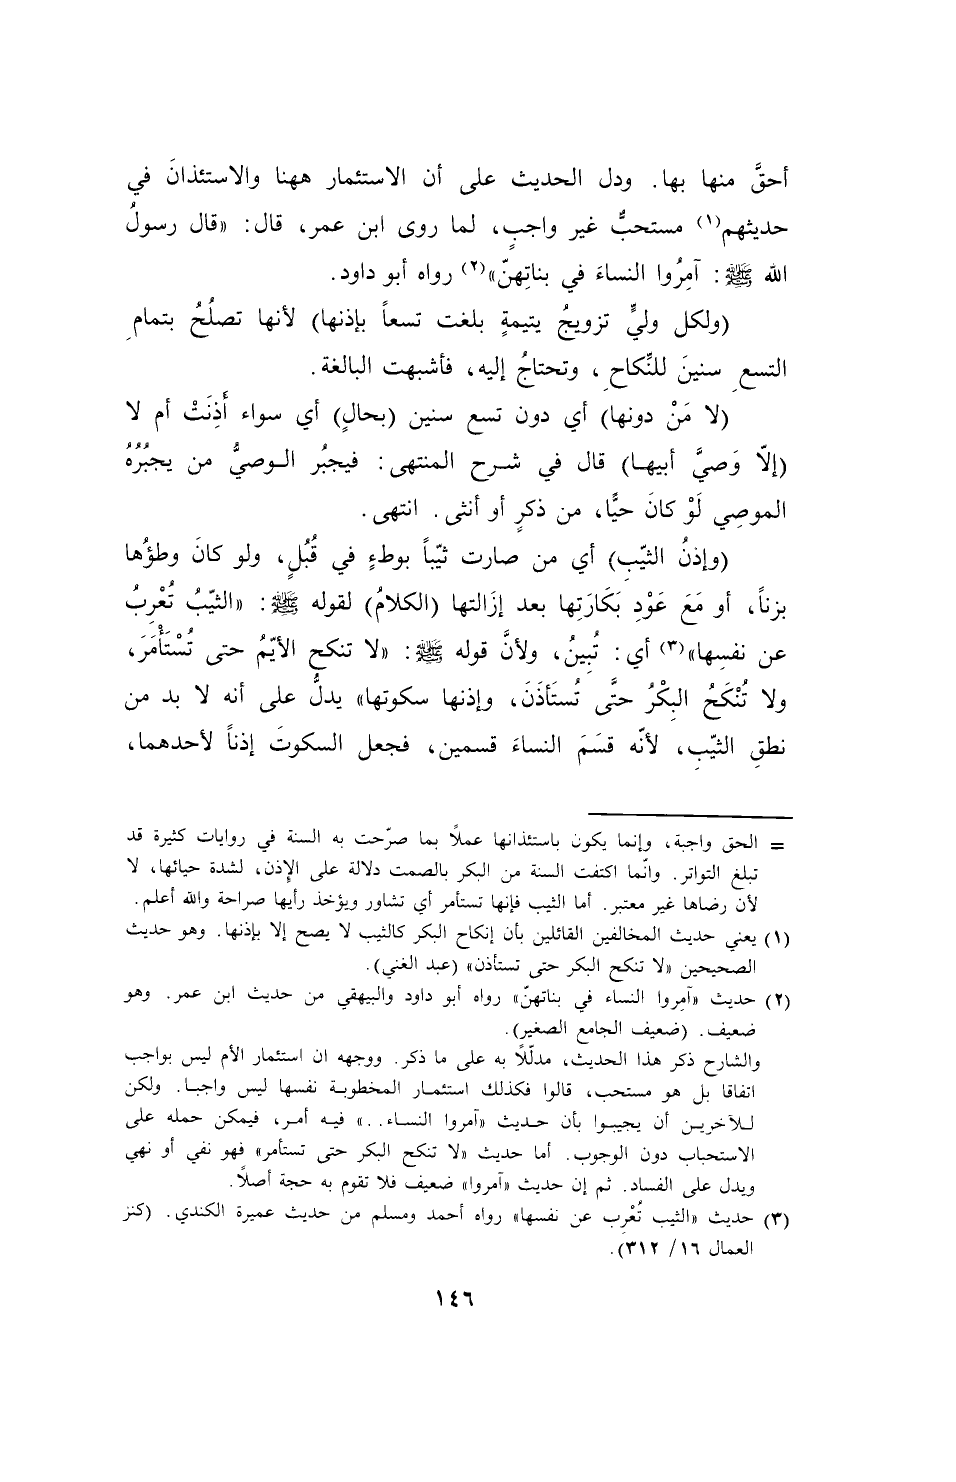 أحقَّ منها بها. ودل الحديث على أن الاستئمار ههنا والاستئذانَ في
حديثهم(١) مستحبٌّ غير واجبٍ، لما روى ابن عمر، قال: «قال رسولُ
الله ﷺ: آمِرُوا النساءَ في بناتِهنّ»(٢) رواه أبو داود.
(ولكل وليٍّ تزويجُ يتيمةٍ بلغت تسعاً بإذنها) لأنها تصلُحُ بتمامِ
التسعِ سنينَ للنِّكاحِ، وتحتاجُ إليه، فأشبهت البالغة.
(لا مَنْ دونها) أي دون تسع سنين (بحالٍ) أي سواء أَذِنَتْ أم لا
(إلّا وَصيَّ أبيها) قال في شرح المنتهى: فيجبُر الوصيُّ من يجبُرُهُ
الموصِي لَوْ كانَ حيًّا، من ذكرٍ أو أنثى. انتهى.
(وإذنُ الثيّبِ) أي من صارت ثيّباً بوطءٍ في قُبُلٍ، ولو كانَ وطؤُها
بزناً، أو مَعَ عَوْدِ بَكَارَتِها بعد إزَالتها (الكلامُ) لقوله ﷺ: «الثيّبُ تُعْرِبُ
عن نفسِها»(٣) أي: تُبِينُ، ولأنَّ قوله ﷺ: «لا تنكح الأيّمُ حتى تُسْتَأْمَرَ،
ولا تُنْكَحُ البِكْرُ حتَّى تُستَأذَنَ، وإذنها سكوتها» يدلُّ على أنه لا بد من
نطقِ الثيّبِ، لأنّه قسَمَ النساءَ قسمين، فجعل السكوتَ إذناً لأحدهما،
= الحق واجبة، وإنما يكون باستئذانها عملًا بما صرّحت به السنة في روايات كثيرة قد
تبلغ التواتر. وانّما اكتفت السنة من البكر بالصمت دلالة على الإذن، لشدة حيائها، لا
لأن رضاها غير معتبر. أما الثيب فإنها تستأمر أي تشاور ويؤخذ رأيها صراحة والله أعلم.
(١) يعني حديث المخالفين القائلين بأن إنكاح البكر كالثيب لا يصح إلا بإذنها. وهو حديث
الصحيحين «لا تنكح البكر حتى تستأذن» (عبد الغني).
(٢) حديث «آمِروا النساء في بناتهنّ» رواه أبو داود والبيهقي من حديث ابن عمر. وهو
ضعيف. (ضعيف الجامع الصغير).
والشارح ذكر هذا الحديث، مدلّلًا به على ما ذكر. ووجهه ان استئمار الأم ليس بواجب
اتفاقا بل هو مستحب، قالوا فكذلك استئمار المخطوبة نفسها ليس واجبا. ولكن
للآخرين أن يجيبوا بأن حديث «آمروا النساء..» فيه أمر، فيمكن حمله على
الاستحباب دون الوجوب. أما حديث «لا تنكح البكر حتى تستأمر» فهو نفي أو نهي
ويدل على الفساد. ثم إن حديث «آمروا» ضعيف فلا تقوم به حجة أصلًا.
(٣) حديث «الثيب تُعْرِب عن نفسها» رواه أحمد ومسلم من حديث عميرة الكندي. (كنز
العمال ١٦/ ٣١٢).
١٤٦